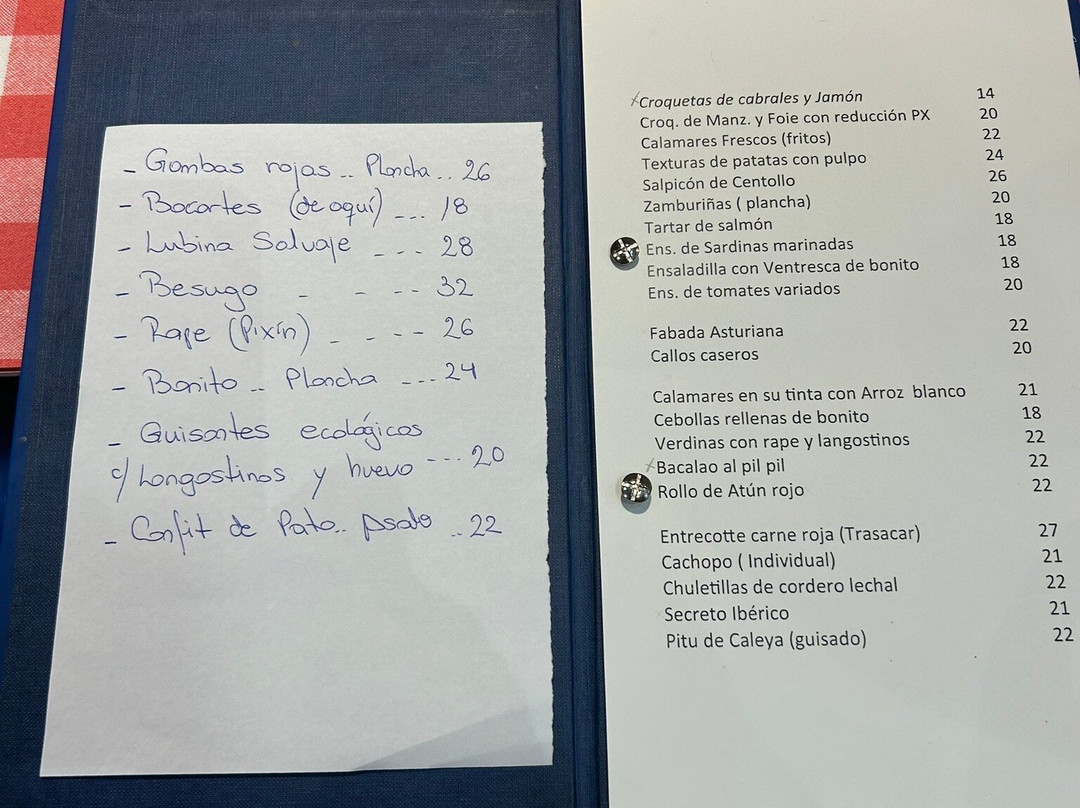 - Gambas rojas .. Plancha .. 26
- Bocartes (de aquí) --- 18
- Lubina Salvaje --- 28
- Besugo - - -- 32
- Rape (Pixín) - - -- 26
- Bonito .. Plancha --- 24
- Guisantes ecológicos
c/ Langostinos y huevo --- 20
- Confit de Pato.. Asado .. 22
Croquetas de cabrales y Jamón 14
Croq. de Manz. y Foie con reducción PX 20
Calamares Frescos (fritos) 22
Texturas de patatas con pulpo 24
Salpicón de Centollo 26
Zamburiñas ( plancha) 20
Tartar de salmón 18
Ens. de Sardinas marinadas 18
Ensaladilla con Ventresca de bonito 18
Ens. de tomates variados 20
Fabada Asturiana 22
Callos caseros 20
Calamares en su tinta con Arroz blanco 21
Cebollas rellenas de bonito 18
Verdinas con rape y langostinos 22
Bacalao al pil pil 22
Rollo de Atún rojo 22
Entrecotte carne roja (Trasacar) 27
Cachopo ( Individual) 21
Chuletillas de cordero lechal 22
Secreto Ibérico 21
Pitu de Caleya (guisado) 22